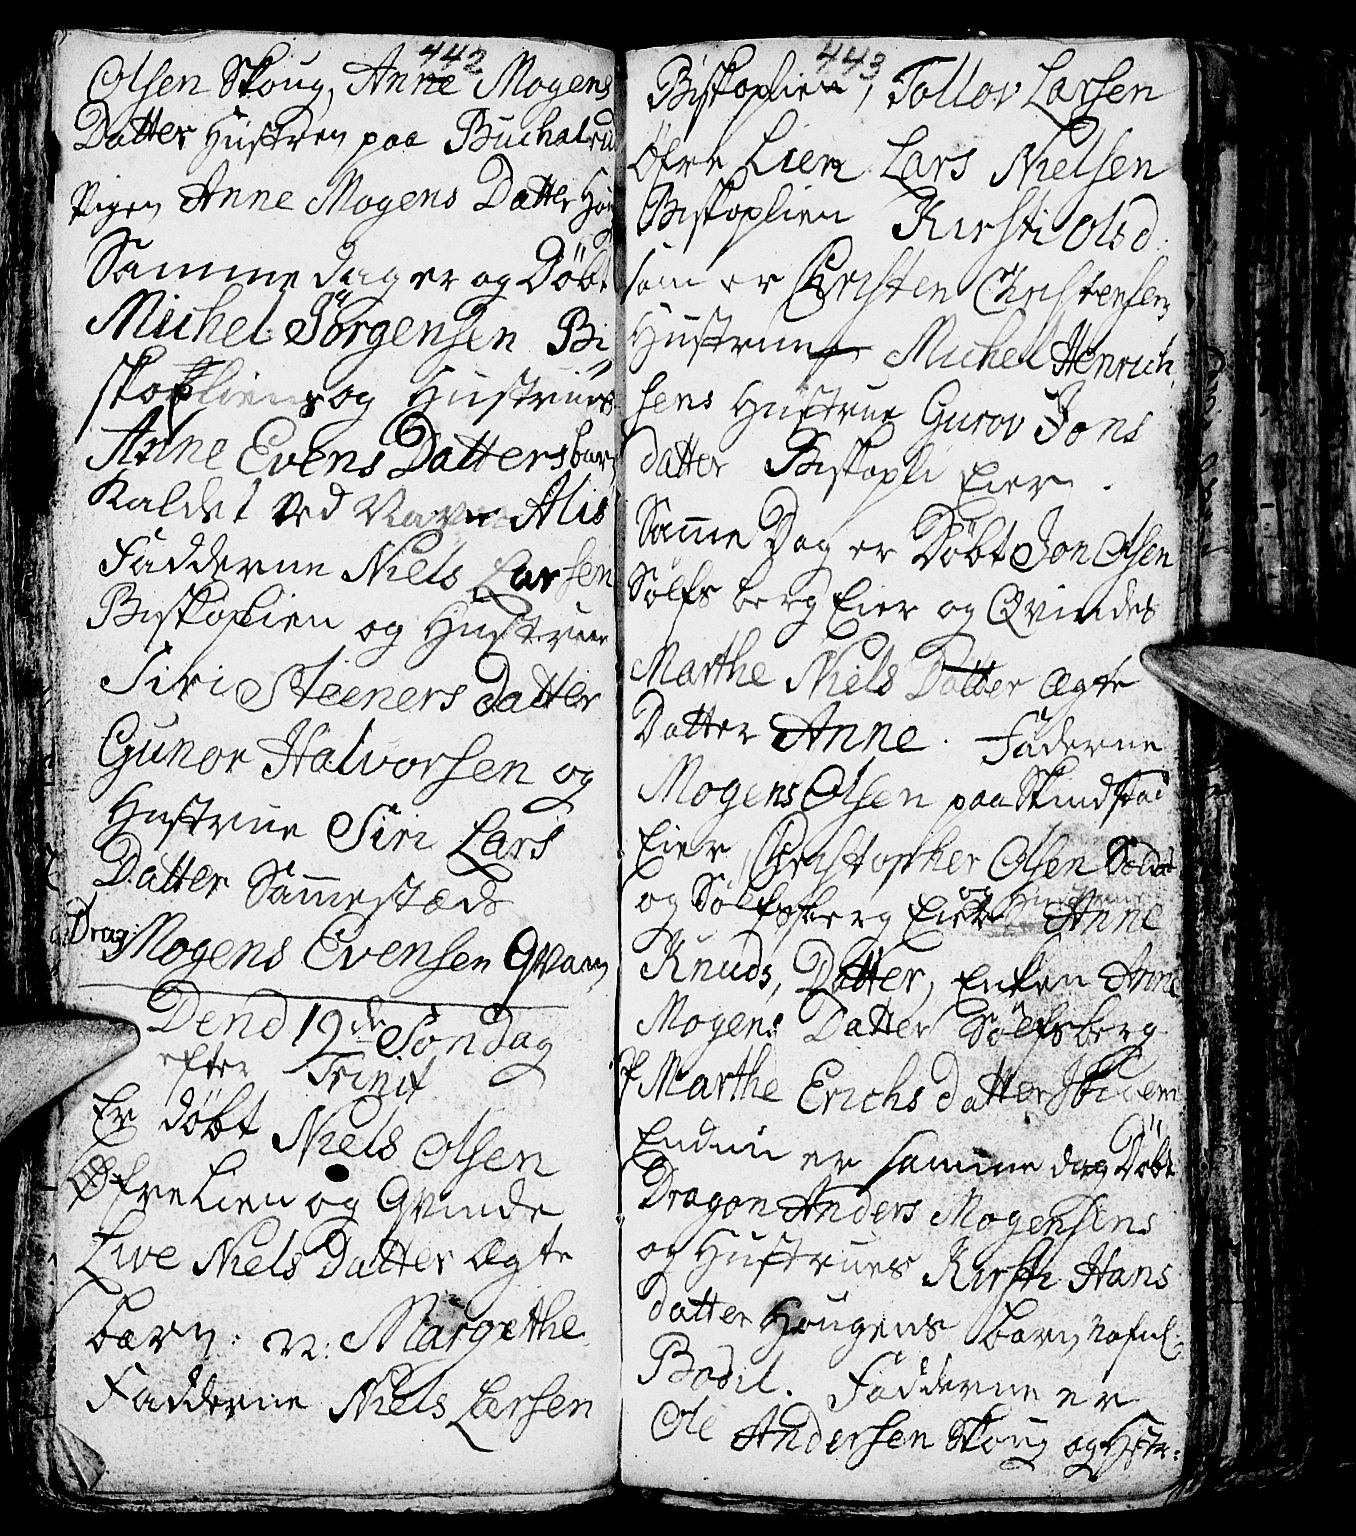 442
Olsen Skoug, Anne Mogens
Datter Hustruen paa Buchalrud
Pigen Anne Mogens Datter
Samme dag er og Döbt
Michel Jörgensen Bi
skoplien og Hustrues
Anne Evens Datters barn
Kaldet ved Navn Alis
Fadderne Niels Larsen
Biskoplien og Hustrue
Siri Steeners datter
Gunor Halvorsen og
Hustrue Siri Lars
Datter Sammestæds
Drag: Mogens Evensen Qvam
Dend 19de Söndag
efter Trinit
Er döbt Niels Olsen
Öfre Lien og Qvinde
Live Niels Datter Ægte
barn: N: Margrethe
Fadderne Niels Larsen
443
Biskoplien, Tollov Larsen
Öfre Lien Lars Nielsen
Biskoplien Kirsti Olsd
som er Christen Christensens
Hustrue Michel Henrich
sens Hustrue Gurov Jons
datter Biskopli Eier.
Samme Dag er Döbt Jon Olsen
Sölfsberg Eier og Qvindes
Marthe Niels Datter Ægte
Datter Anne. Faderne
Mogens Olsen paa Skindstad
Eier, Christopher Olsen
og Sölfsberg Eier og Hustrue Anne
Knuds Datter, Enken Anne
Mogens Datter Sölfsberg
P Marthe Erichs datter
Endnu er samme dag Döbt
Dragon Anders Mogensens
og Hustrues Kirsti Hans
datter Hougens barn Nafnl:
Bodil. Fadderne er
Ole Andersen Skoug og Hstr: